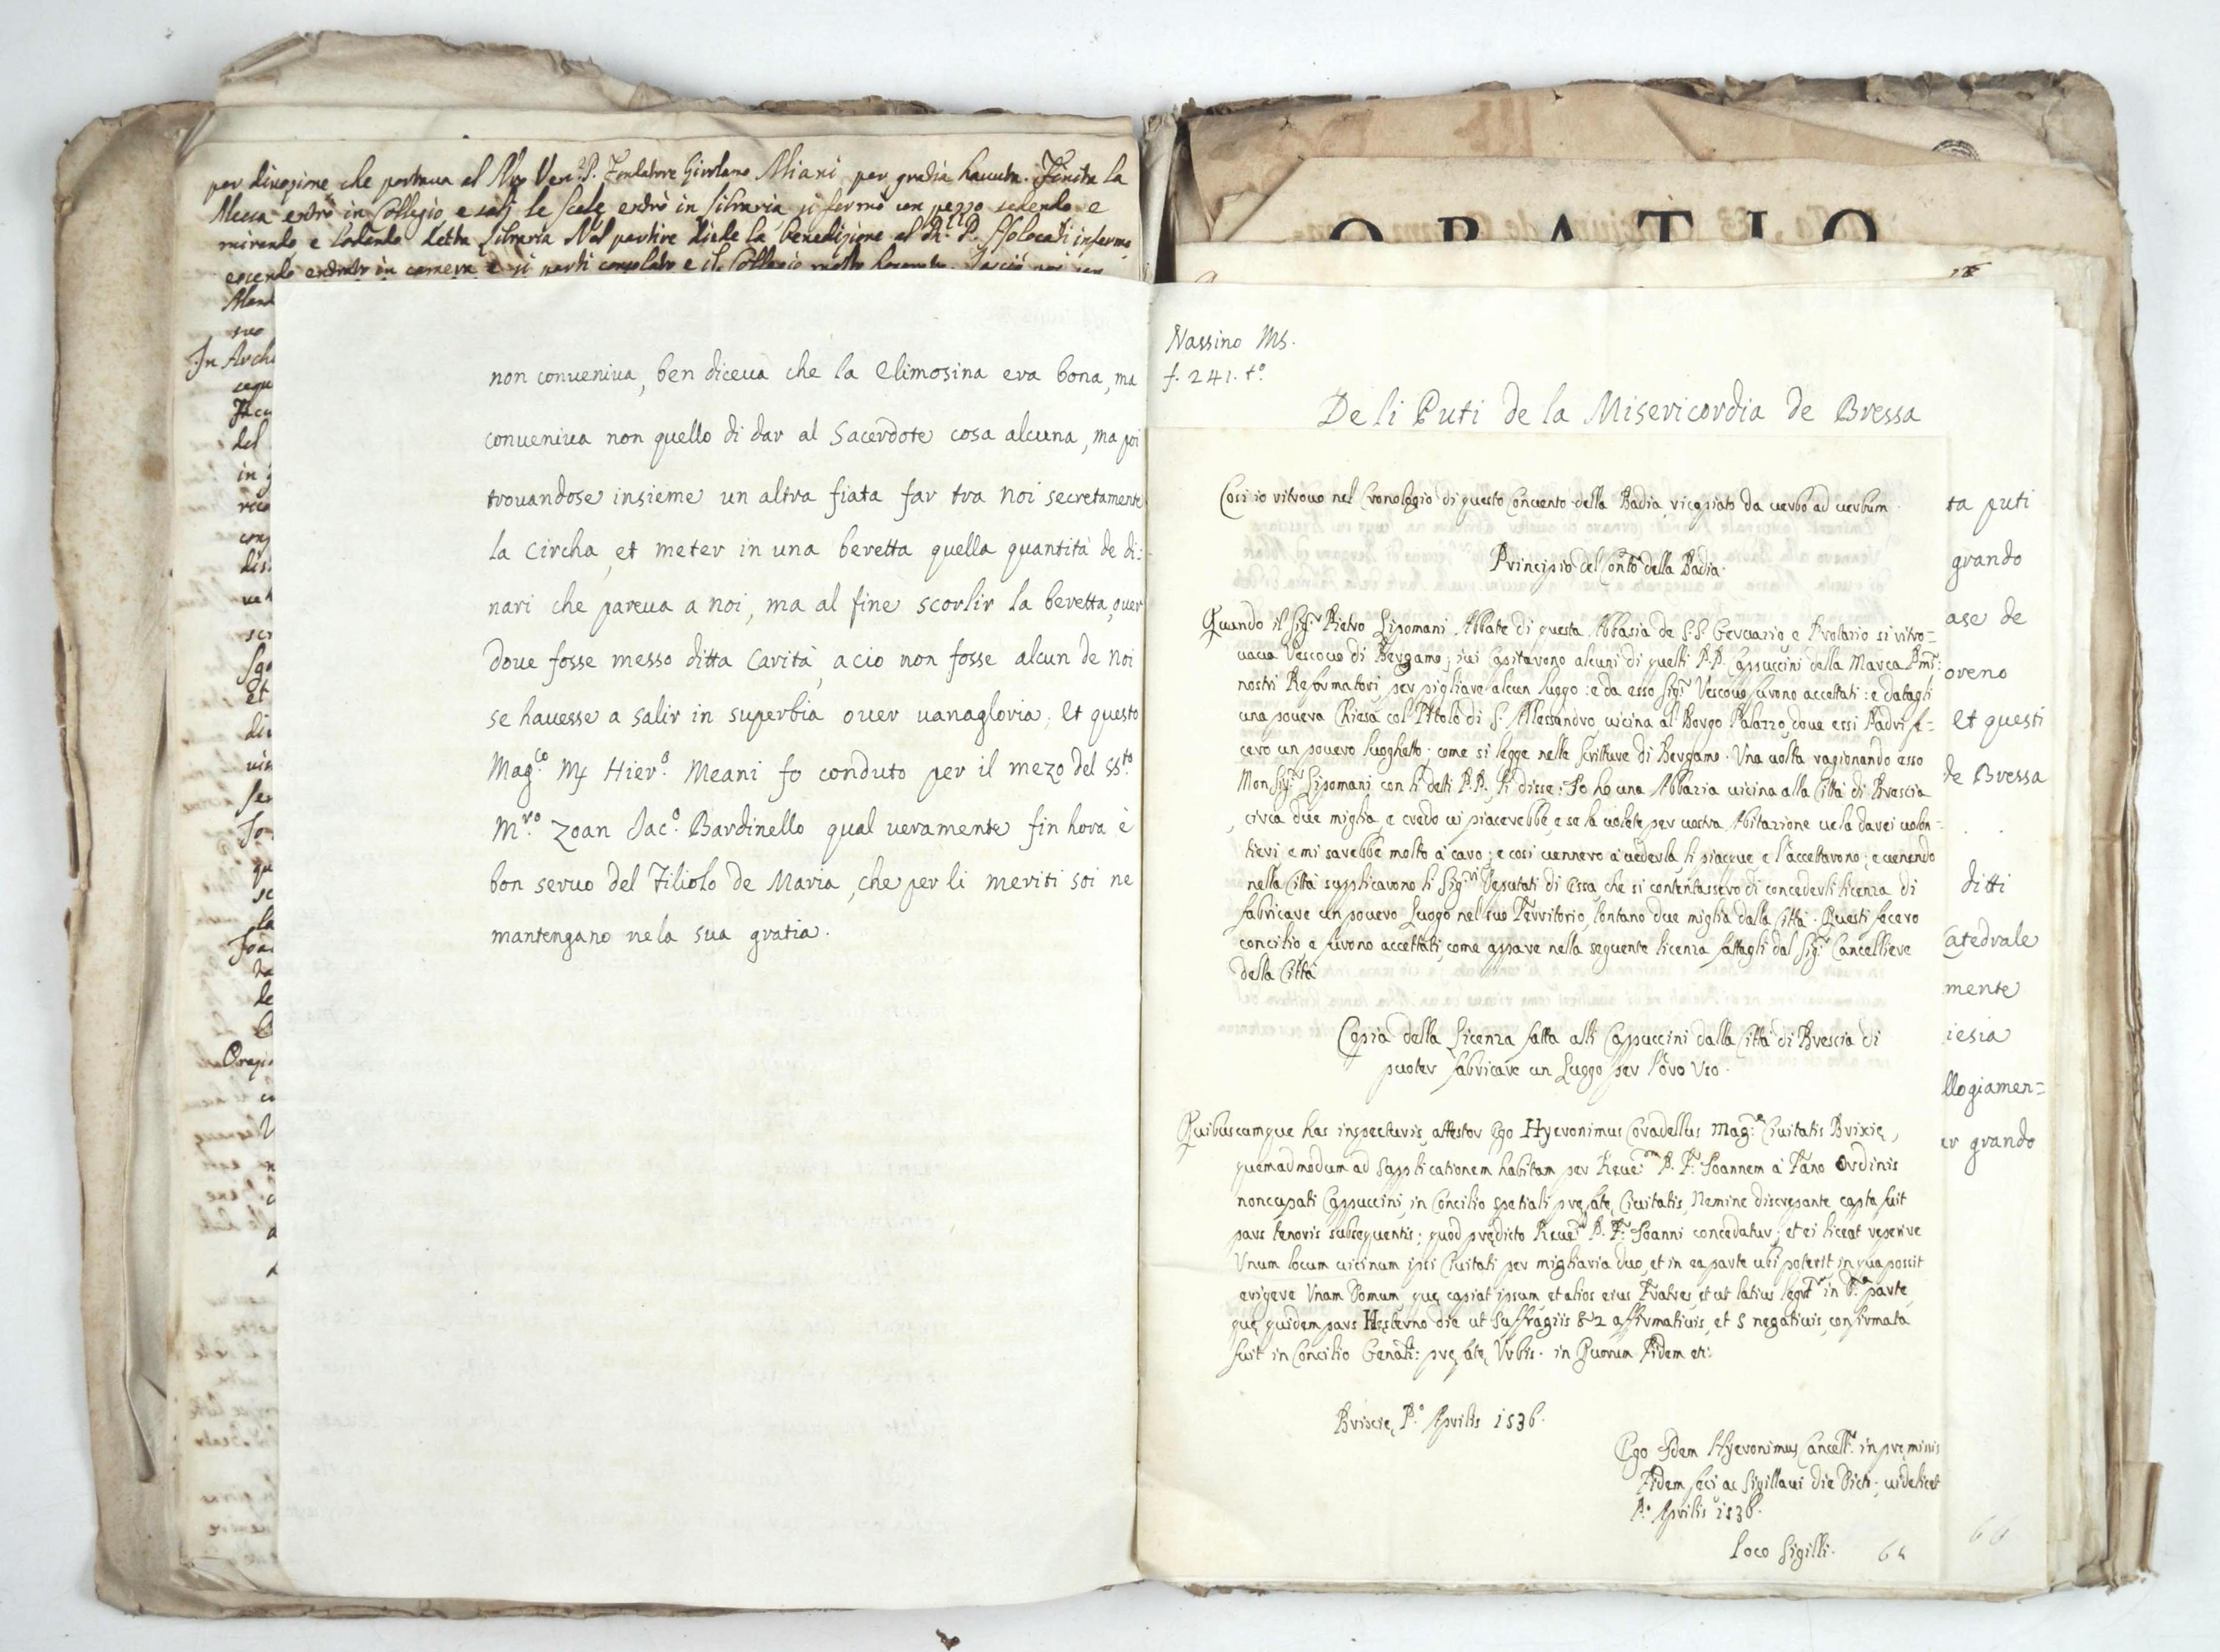 per divozione che portava al Nro Ven. P. Fondatore Girolamo Miani per gradia havuta. Finita la
Messa entrò in Collegio, e salì le scale entrò in libraria si fermò un pezzo sedendo e
mirando e lodando detta libraria Nel partire diede la benedizione al infermo,
essendo entrato in camera e si partì consolato e il Collegio
In Arch
del
in
et
non conueniua, ben diceua che la elimosina era bona, ma
conueniua non quello di dar al Sacerdote cosa alcuna, ma poi
trouandose insieme un altra fiata far tra noi secretamente
la circha, et meter in una beretta quella quantità de di:
nari che pareua a noi, ma al fine scorlir la beretta, ouer
doue fosse messo ditta Carità, acio non fosse alcun de noi
se hauesse a salir in superbia ouer uanagloria; et questo
Mag.co Mf Hier.o Meani fo conduto per il mezo del SS.to
M.ro Zoan Jac.o Bardinello qual ueramente fin hora è
bon seruo del Filiolo de Maria, che per li meriti soi ne
mantengano ne la sua gratia.
ORATIO
Nassino Ms.
f. 241. t.o
De li Puti de la Misericordia de Bressa
Cosi io ritrouo nel Cronologio di questo Conuento della Badia, ricopiato da uerbo ad uerbum.
Principio del Conto della Badia.
Quando il Sig.r Pietro Lipomani Abbate di questa Abbasia de S.S. Geruario e Protario si ritro=
uaua Vescouo di Bergamo; iui Capitarono alcuni di quelli P.P. Cappuccini della Marca Pmi:
nostri Reformatori per pigliare alcun luogo: e da esso Sig.r Vescouo furono accettati: e datagli
una pouera Chiesa col Titolo di S. Alessandro, uicina al Borgo Palazzo, doue essi Padri fe=
cero un pouero luoghetto; come si legge nelle scritture di Bergamo. Una uolta ragionando esso
Monsig.r Lipomani con li detti P.P. li disse: Io ho una Abbazia uicina alla Città di Brescia
circa due miglia, e credo ui piacerebbe, e se la uolete per uostra Abitazione ue la darei uolon=
tieri e mi sarebbe molto à caro; e cosi uennero à uederla li piacque e l'accettarono; e uenendo
nella Città supplicarono li Sig.ri Deputati di essa, che si contentassero di concederli licenza di
fabricare un pouero Luogo nel suo Territorio, lontano due miglia dalla Città. Questi fecero
concilio, e furono accettati, come appare nella seguente licenza fattagli dal Sig.r Cancelliere
della Città
Copia della Licenza fatta alli Cappuccini dalla Città di Brescia di
puoter fabricare un Luogo per loro Uso.
Quibuscumque has inspecturis, attestor Ego Hyeronimus Coradellus Mag.ce Ciuitatis Brixię,
quemadmodum ad Supplicationem habitam per Reue.om P. F. Joannem à Fano Ordinis
noncupati Cappuccini, in Concilio spetiali pręfatę Ciuitatis, Nemine discrepante capta fuit
pars tenoris subsequentis; quod prędicto Reue.do P. F. Joanni concedatur; et ei liceat reperire
Unum locum uicinum ipsi Ciuitati per migliaria duo, et in ea parte ubi poterit in qua possit
erigere Unam Domum, quę capiat ipsum et alios eius Fratres, et ut latius legit.r in D.a parte,
quę quidem pars Hesterno die ut Suffragiis 82 affirmatiuis, et 5 negatiuis, confirmata
fuit in Concilio Genali: pręfatę Urbis. in Quorum Fidem etc:
Brixię P.o Aprilis 1536.
Ego Idem Hyeronimus Cancell.s in pręmissis
Fidem feci ac Sigillaui die Dicti; uidelicet
P.o Aprilis 1536.
Loco Sigilli.
64
66
ta puti
grando
ase de
oreno
et questi
de Bressa
ditti
Catedrale
mente
iesia
llogiamen=
er grando